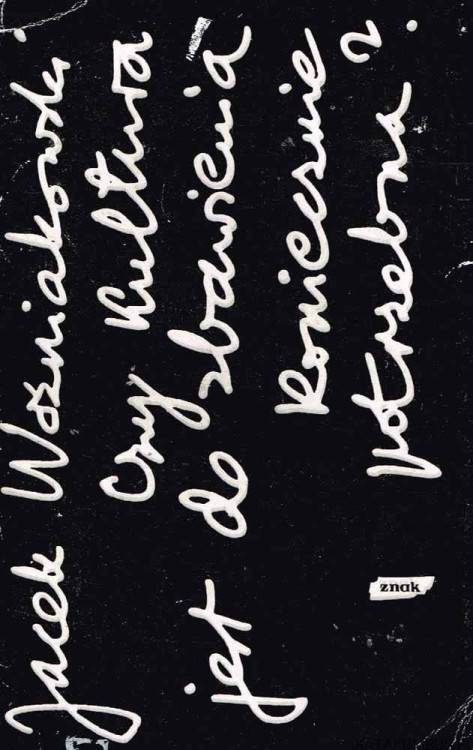 Jacek Woźniakowski
Czy kultura
jest do zbawienia
koniecznie
potrzebna?
znak